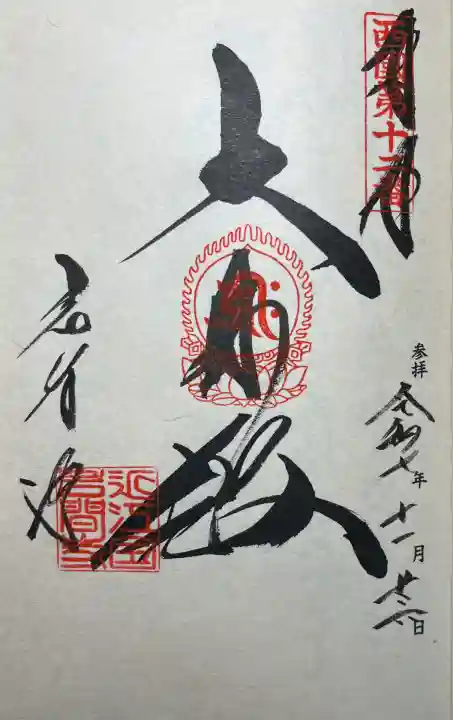 奉拝
西國第十二番
参拝 令和七年十一月廿 日
大悲殿
岩間寺
近江國
岩間寺